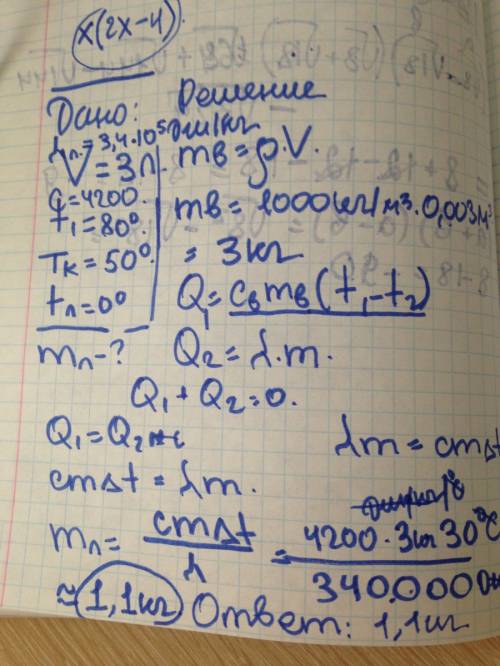 x(2x-4)
Дано: Решение
λл.=3,4·10⁵ дж/кг
V=3л.
mв=ρ·V.
c=4200.
t₁=80°
mв=1000кг/м³·0,003м³
Tк=50°.
=3кг
tл=0°
Q₁=cвmв(t₁-t₂)
mл-?
Q₂=λ·m.
Q₁+Q₂=0.
Q₁=Q₂
λm=cmΔt
cmΔt=λm.
mл= cmΔt / λ = 4200·3кг 30°C / 340000
≈1,1кг Ответ: 1,1кг